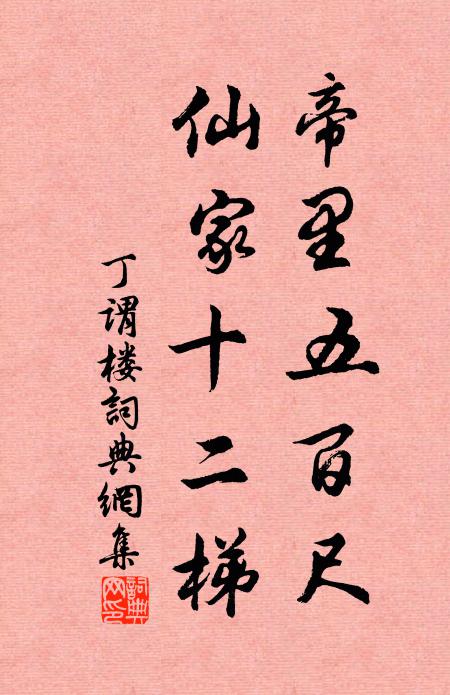 帝里五百尺
仙家十二梯
丁谓楼詞典網集
詞典网印